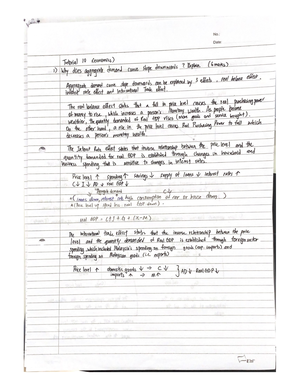 No:
Date:
Tutorial 10 (economics)
1) Why does aggregate demand curve slope downwards? Explain (6 marks)
Aggregate demand curve slope downwards can be explained by 3 effects, real balance effect,
interest rate effect and international trade effect.
The real balance effect states that a fall in price level causes the real purchasing power
of money to rise, which increases a person's monetary wealth. As people become
wealthier, the quantity demanded of Real GDP rises (more goods and services bought).
On the other hand, a rise in the price level causes that Purchasing Power to fall which
decreases a person's monetary wealth.
The Interest Rate effect states that inverse relationship between the price level and the
quantity demanded for real GDP is established through changes in household and
business spending that is sensitive to changes in interest rates.
Price level ↑ spending ↑ savings ↓ supply of loans ↓ interest rates ↑
C↓ I↓ AD↓ real GDP↓
real GDP = C + I + G + (X-M)
The international trade effect states that the inverse relationship between the price
level and the quantity demanded of Real GDP is established through foreign sector
spending which included Malaysian spending on foreign goods (ex. imports) and
foreign spending on Malaysian goods (i.e. exports)
Price level ↑ domestic goods ↓ → C↓
imports ↑ → M↑ } AD↓ Real GDP↓